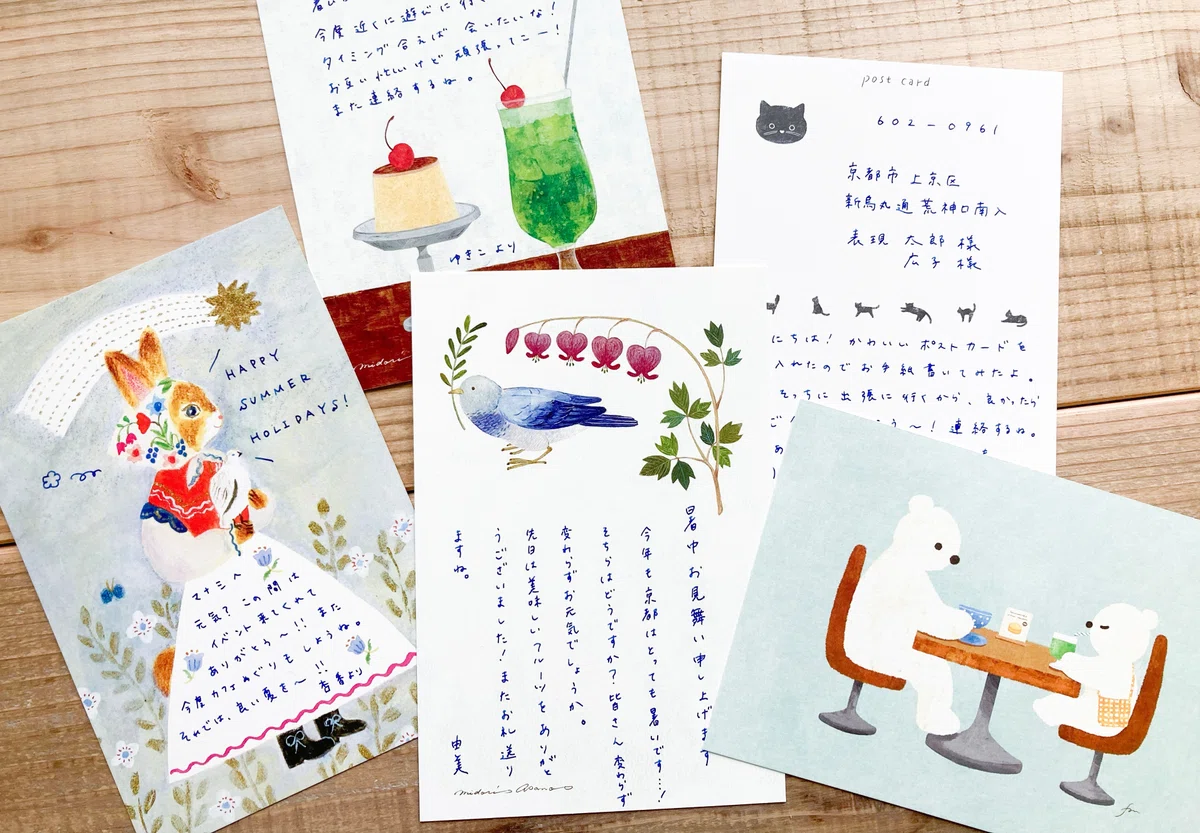 今度近くに遊びに行く
タイミング合えば 会いたいな!
お互い忙しいけど 頑張ってこー!
また連絡するね。
ゆきこより
midori
post card
602-0961
京都市上京区
新烏丸通荒神口南入
表現 太郎 様
広子 様
にちは! かわいい ポストカードを
入れたのでお手紙書いてみたよ。
そっちに出張に行くから、良かったら
う〜! 連絡するね。
HAPPY
SUMMER
HOLIDAYS!
マナミへ
元気? この間は
イベント来てくれて
ありがとう〜!! また
今度カフェめぐりもしようね。
それでは、良い夏を〜!! 杏香より
暑中お見舞い申し上げます
今年も京都はとっても暑いです…!
そちらはどうですか? 皆さん変わらず
変わらずお元気でしょうか。
先日は美味しいフルーツをありがと
うございました! またお礼送り
ますね。
由美
midori Asano